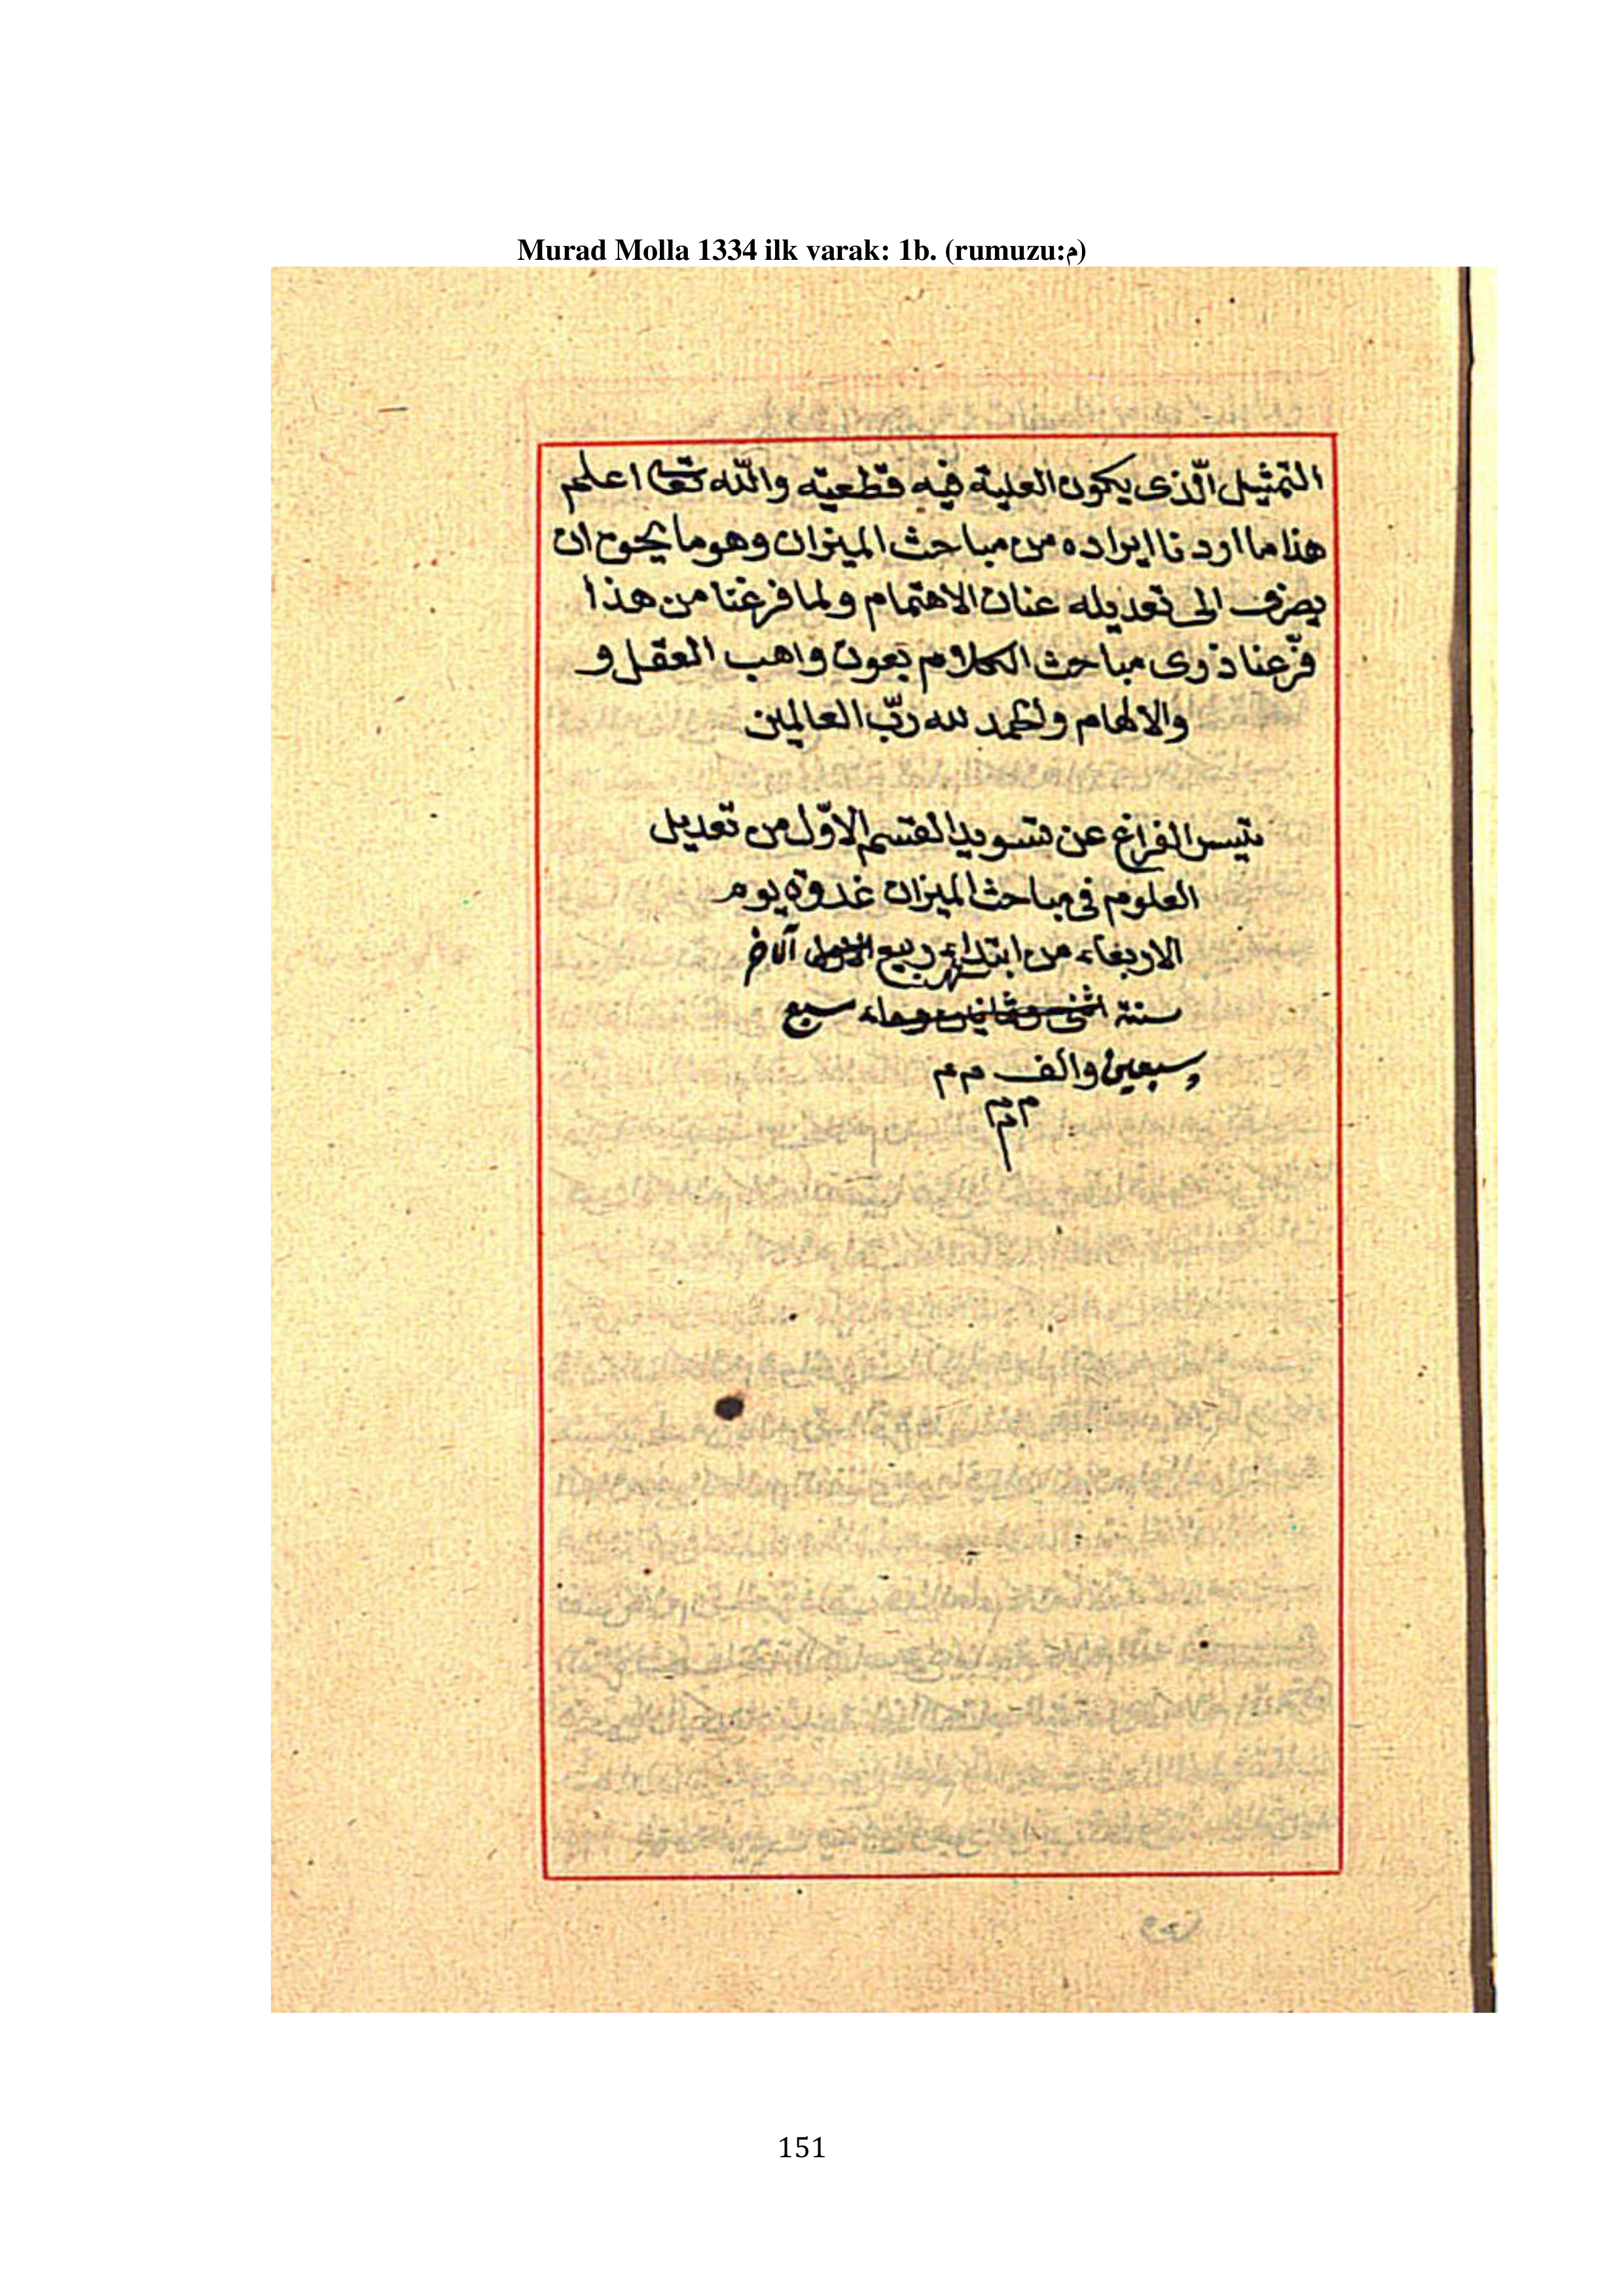 Murad Molla 1334 ilk varak: 1b. (rumuzu:م)
التمثيل الّذى يكون العلية فيه قطعيته واللّه تعا اعلم
هذا ما اردنا ايراده من مباحث الميزان وهو ما يحوج ان
يصرف الى تعديله عنان الاهتمام ولما فرغنا من هذا
فرّعنا ذرى مباحث الكلام بعون واهب العقل و
والالهام والحمد لله ربّ العالمين
تيسر الفراغ عن تسويد القسم الاوّل من تعديل
العلوم فى مباحث الميزان غدوة يوم
الاربعاء من ابتداء شهر ربيع الاول الآخر
سنة اثنى وثمانين وماء سبع
وسبعين والف م م
م م م
151